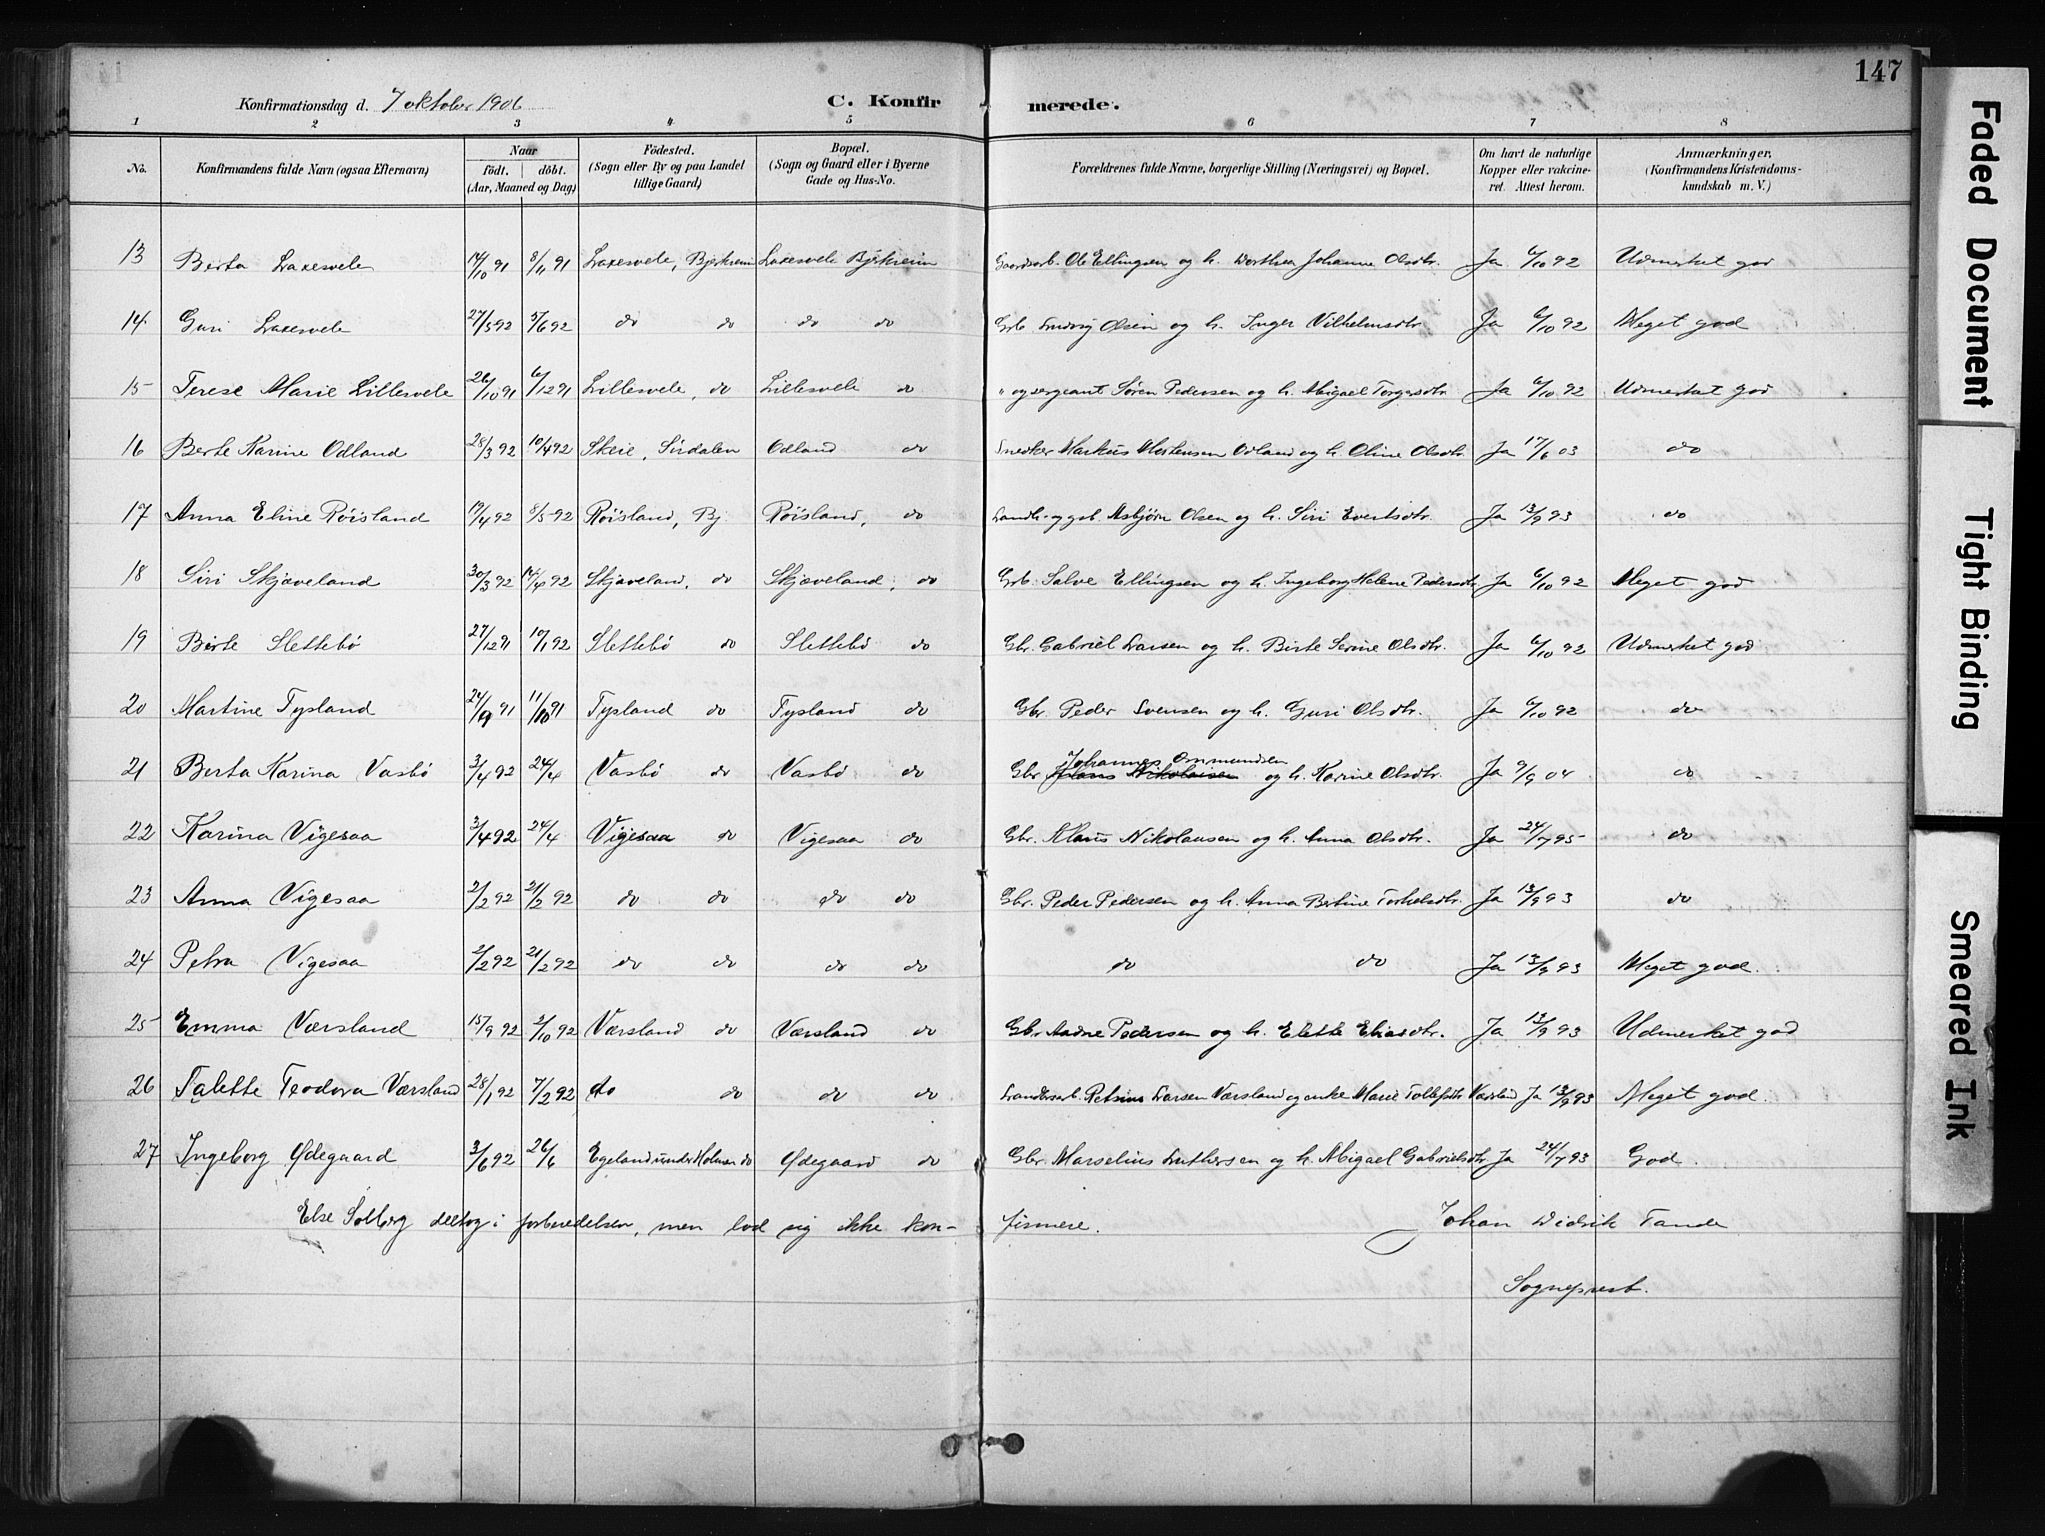 147
Konfirmationsdag d. 7 oktober 1906 C. Konfirmerede.
1 2 3 4 5 6 7 8
No. Konfirmandens fulde Navn (ogsaa Efternavn) Naar født. døbt. (Aar, Maaned og Dag) Fødested. (Sogn eller By og paa Landet tillige Gaard) Bopæl. (Sogn og Gaard eller i Byerne Gade og Hus-No. Forældrenes fulde Navne, borgerlige Stilling (Næringsvei) og Bopæl. Om havt de naturlige Kopper eller vakcineret. Attest herom. Anmærkninger, (Konfirmandens Kristendomskundskab m. V.)
13 Berta Laxesvele 14/10 91 8/11 91 Laxesvele, Bjerkreim Laxesvele Bjerkreim Gaardsarb. Ole Ellingsen og h. Dorthea Johanne Olsdtr. Ja 6/10 92 Udmerket god
14. Guri Laxesvele 27/5 92 5/6 92 do do do do Grb Ludvig Olsen og h. Inger Vilhelmsdtr Ja 6/10 92 Meget god
15 Terese Marie Lillesvele 26/10 91 6/12 91 Lillesvele, do Lillesvele do " og sergeant Søren Pedersen og h. Abigael Torgersdtr Ja 6/10 92 Udmerket god
16 Berte Karine Odland 28/3 92 10/4 92 Skeie, Sirdalen Odland do Snedker Markus Mortensen Odland og h. Oline Olsdtr. Ja 17/6 03 do
17 Anna Eline Røisland 19/4 92 8/5 92 Røisland, Bj Røisland, do Landh- og gsb. Asbjørn Olsen og h. Siri Evertsdtr. Ja 13/9 93 do
18 Siri Skjæveland 30/3 92 14/4 92 Skjæveland, do Skjæveland, do Grb. Salve Ellingsen og h. Ingeborg Helene Pedersdtr Ja 6/10 92 Meget god
19 Birte Slettebø 27/12 91 10/1 92 Slettebø do Slettebø do Gbr. Gabriel Larsen og h. Birte Serine Olsdtr. Ja 6/10 92 Udmerket god
20 Martine Tysland 24/9 91 11/10 91 Tysland do Tysland do Gbr. Peder Svensen og h. Guri Olsdtr. Ja 6/10 92 do
21 Berta Karina Vasbø 3/4 92 24/4 Vasbø do Vasbø do Gbr Johannes Ommundsen Klaus Nikolaisen og h. Karine Olsdtr. Ja 9/9 04 do
22 Karina Vigesaa 3/4 92 24/4 Vigesaa do Vigesaa do Gbr. Klaus Nikolausen og h. Anna Olsdtr. Ja 24/7 95 do
23 Anna Vigesaa 2/2 92 21/2 92 do do do do Gbr. Peder Pedersen og h. Anna Bertine Torkelsdtr. Ja 13/9 93 do
24 Petra Vigesaa 2/2 92 21/2 92 do do do do do do Ja 13/9 93 Meget god.
25 Emma Værsland 15/9 92 2/10 92 Værsland do Værsland do Gbr Aadne Pedersen og h. Elette Eliasdtr. Ja 13/9 93 Udmerket god
26 Talette Teodora Værsland 28/1 92 7/2 92 do do do do Landarb. Larsen Værsland og enke Marie Tollefsdtr Værsland Ja 13/9 93 Meget god.
27 Ingeborg Ødegaard 3/6 92 26/6 Egeland under Holmen do Ødegaard do Gbr. Marselius Luthersen og h. Abigael Gabrielsdtr Ja 24/7 93 God.
Else Solberg deltog i forberedelsen, men lod sig ikke konfirmere. Johan Didrik Tande
Sogneprest.
Faded Document
Tight Binding
Smeared Ink